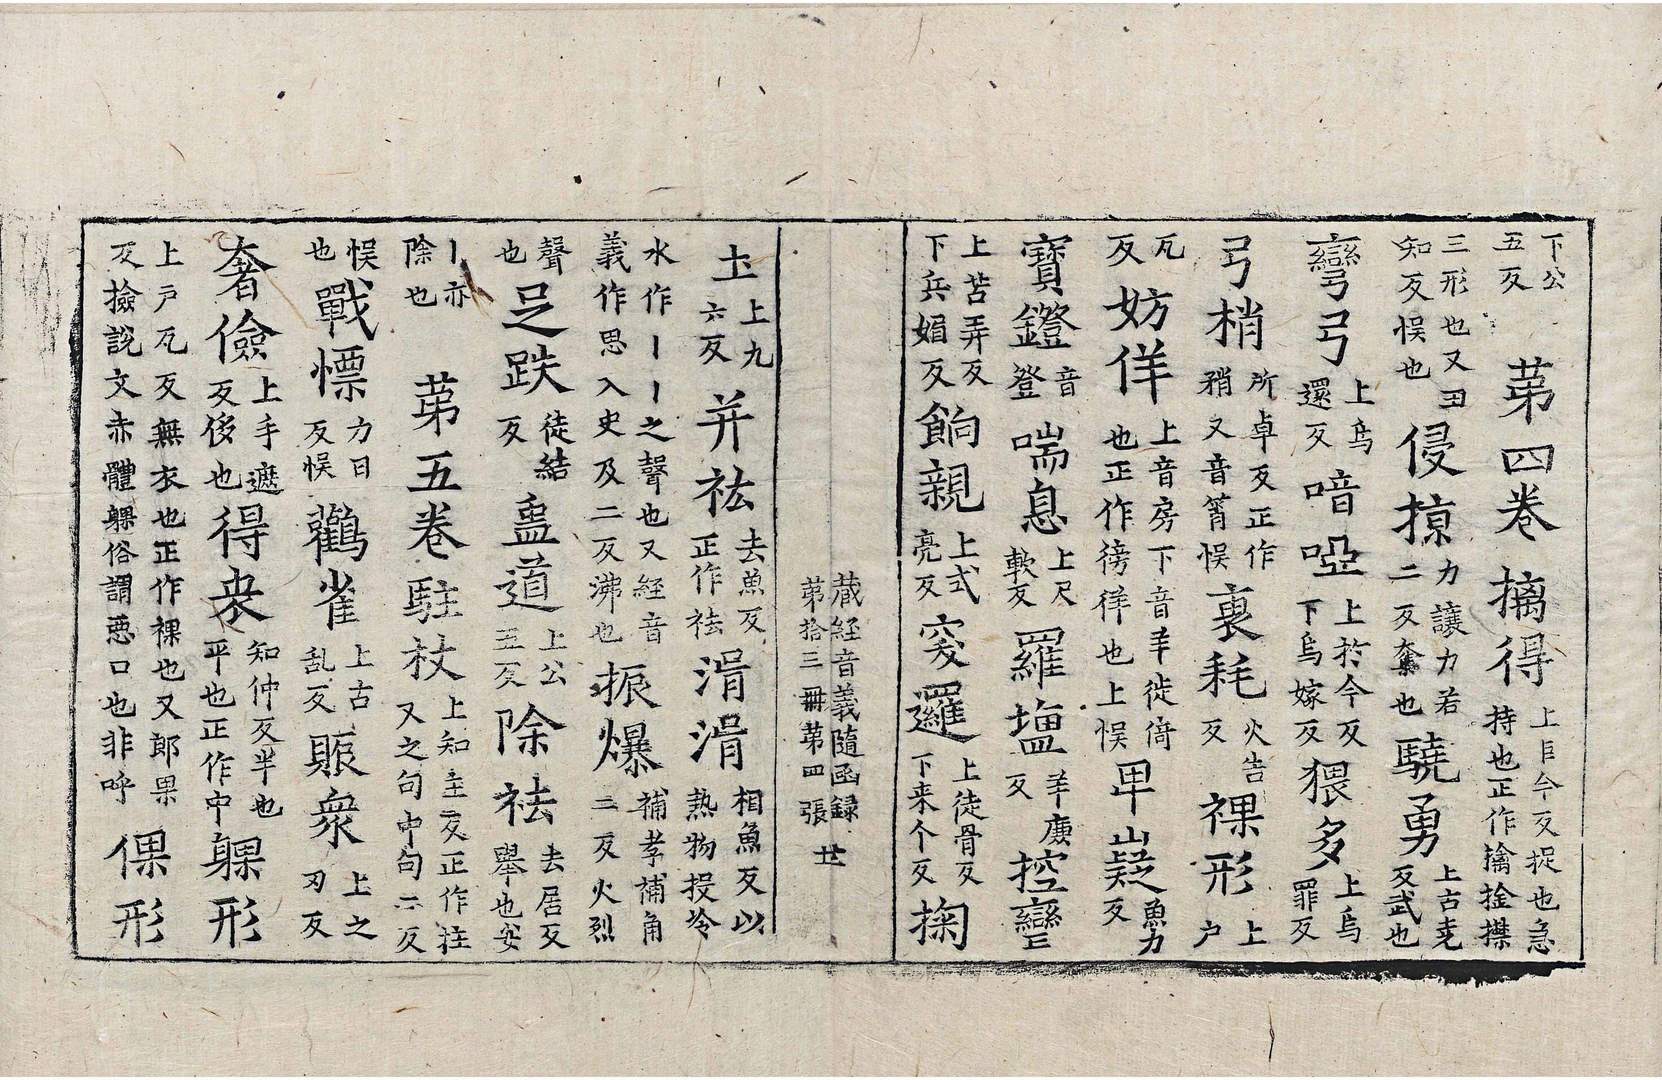 下公五反　第四卷　摛得上巨今反捉也急持也正作擒捦㩒
三形也又丑知反悮也　侵掠力讓力若二反奪也　驍勇上古尭反武也
彎弓上烏還反　喑啞上於今反下烏嫁反　猥多上烏罪反
弓梢所卓反正作矟又音筲悮　裏耗火告反　裸形上户
瓦反　妨佯上音房下音羊徙倚也正作徬徉也上悮　𤰞嶷魚力反
寶鐙音登　喘息上尺軟反　羅𡏖羊廉反　控彎
上苦弄反下兵媚反　餉親上式亮反　窔邏上徒骨反下来个反　掬
藏経音義隨函録第拾三冊第四張　㔺
上九六反　并祛去魚反正作祛　湑湑相魚反以熱物投冷
水作丨丨之聲也又経音義作思入史及二反沸也　振爆補孝補角二反火烈
聲也　足跌徒結反　蛊道上公五反　除祛去居反舉也安
丨亦除也　第五卷　駐杖上知主反正作拄又之句中句二反
悮也　戰慄力日反悮　鸛雀上古乱反　賑衆上之刃反
奢儉上手遮反侈也　得衆知仲反半也平也正作中　躶形
上戸瓦反無衣也正作裸也又郎果反撿說文赤體躶俗謂惡口也非呼　倮形